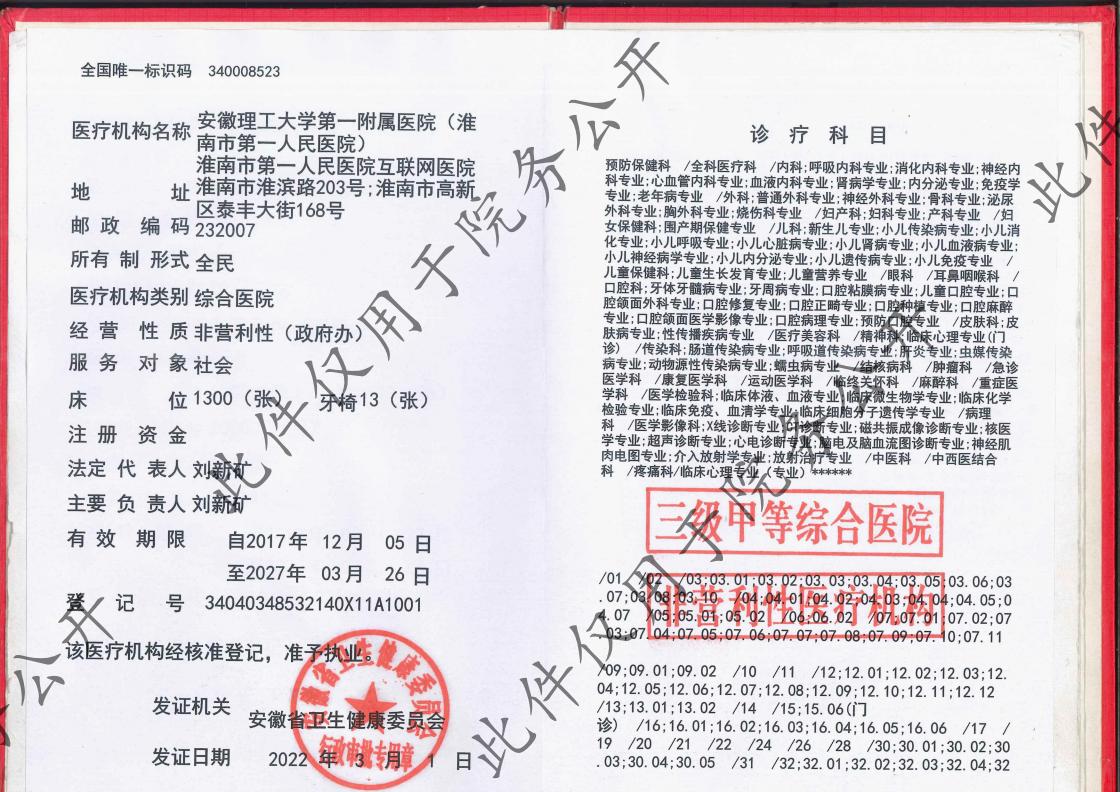 全国唯一标识码 340008523
医疗机构名称 安徽理工大学第一附属医院（淮
南市第一人民医院）
淮南市第一人民医院互联网医院
地 址 淮南市淮滨路203号;淮南市高新
区泰丰大街168号
邮 政 编 码 232007
所有 制 形式 全民
医疗机构类别 综合医院
经 营 性 质 非营利性（政府办）
服 务 对 象 社会
床 位 1300（张） 牙椅13（张）
注 册 资 金
法定 代 表人 刘新矿
主要 负 责人 刘新矿
有 效 期 限 自2017年 12月 05 日
至2027年 03月 26 日
登 记 号 34040348532140X11A1001
该医疗机构经核准登记，准予执业。
发证机关 安徽省卫生健康委员会
发证日期 2022 年 3 月 1 日
安徽省卫生健康委员会
行政审批专用章
诊 疗 科 目
预防保健科 /全科医疗科 /内科;呼吸内科专业;消化内科专业;神经内
科专业;心血管内科专业;血液内科专业;肾病学专业;内分泌专业;免疫学
专业;老年病专业 /外科;普通外科专业;神经外科专业;骨科专业;泌尿
外科专业;胸外科专业;烧伤科专业 /妇产科;妇科专业;产科专业 /妇
女保健科;围产期保健专业 /儿科;新生儿专业;小儿传染病专业;小儿消
化专业;小儿呼吸专业;小儿心脏病专业;小儿肾病专业;小儿血液病专业;
小儿神经病学专业;小儿内分泌专业;小儿遗传病专业;小儿免疫专业 /
儿童保健科;儿童生长发育专业;儿童营养专业 /眼科 /耳鼻咽喉科 /
口腔科;牙体牙髓病专业;牙周病专业;口腔粘膜病专业;儿童口腔专业;口
腔颌面外科专业;口腔修复专业;口腔正畸专业;口腔种植专业;口腔麻醉
专业;口腔颌面医学影像专业;口腔病理专业;预防口腔专业 /皮肤科;皮
肤病专业;性传播疾病专业 /医疗美容科 /精神科;临床心理专业(门
诊) /传染科;肠道传染病专业;呼吸道传染病专业;肝炎专业;虫媒传染
病专业;动物源性传染病专业;蠕虫病专业 /结核病科 /肿瘤科 /急诊
医学科 /康复医学科 /运动医学科 /临终关怀科 /麻醉科 /重症医
学科 /医学检验科;临床体液、血液专业;临床微生物学专业;临床化学
检验专业;临床免疫、血清学专业;临床细胞分子遗传学专业 /病理
科 /医学影像科;X线诊断专业;CT诊断专业;磁共振成像诊断专业;核医
学专业;超声诊断专业;心电诊断专业;脑电及脑血流图诊断专业;神经肌
肉电图专业;介入放射学专业;放射治疗专业 /中医科 /中西医结合
科 /疼痛科/临床心理专业（专业）******
三级甲等综合医院
/01 /02 /03;03.01;03.02;03.03;03.04;03.05;03.06;03
.07;03.08;03.10 /04;04.01;04.02;04.03;04.04;04.05;0
4.07 /05;05.01;05.02 /06;06.02 /07;07.01;07.02;07
.03;07.04;07.05;07.06;07.07;07.08;07.09;07.10;07.11
非营利性医疗机构
/09;09.01;09.02 /10 /11 /12;12.01;12.02;12.03;12.
04;12.05;12.06;12.07;12.08;12.09;12.10;12.11;12.12
/13;13.01;13.02 /14 /15;15.06(门
诊) /16;16.01;16.02;16.03;16.04;16.05;16.06 /17 /
19 /20 /21 /22 /24 /26 /28 /30;30.01;30.02;30
.03;30.04;30.05 /31 /32;32.01;32.02;32.03;32.04;32
此件仅用于院务公开
此件仅用于院务公开
务公开
此件